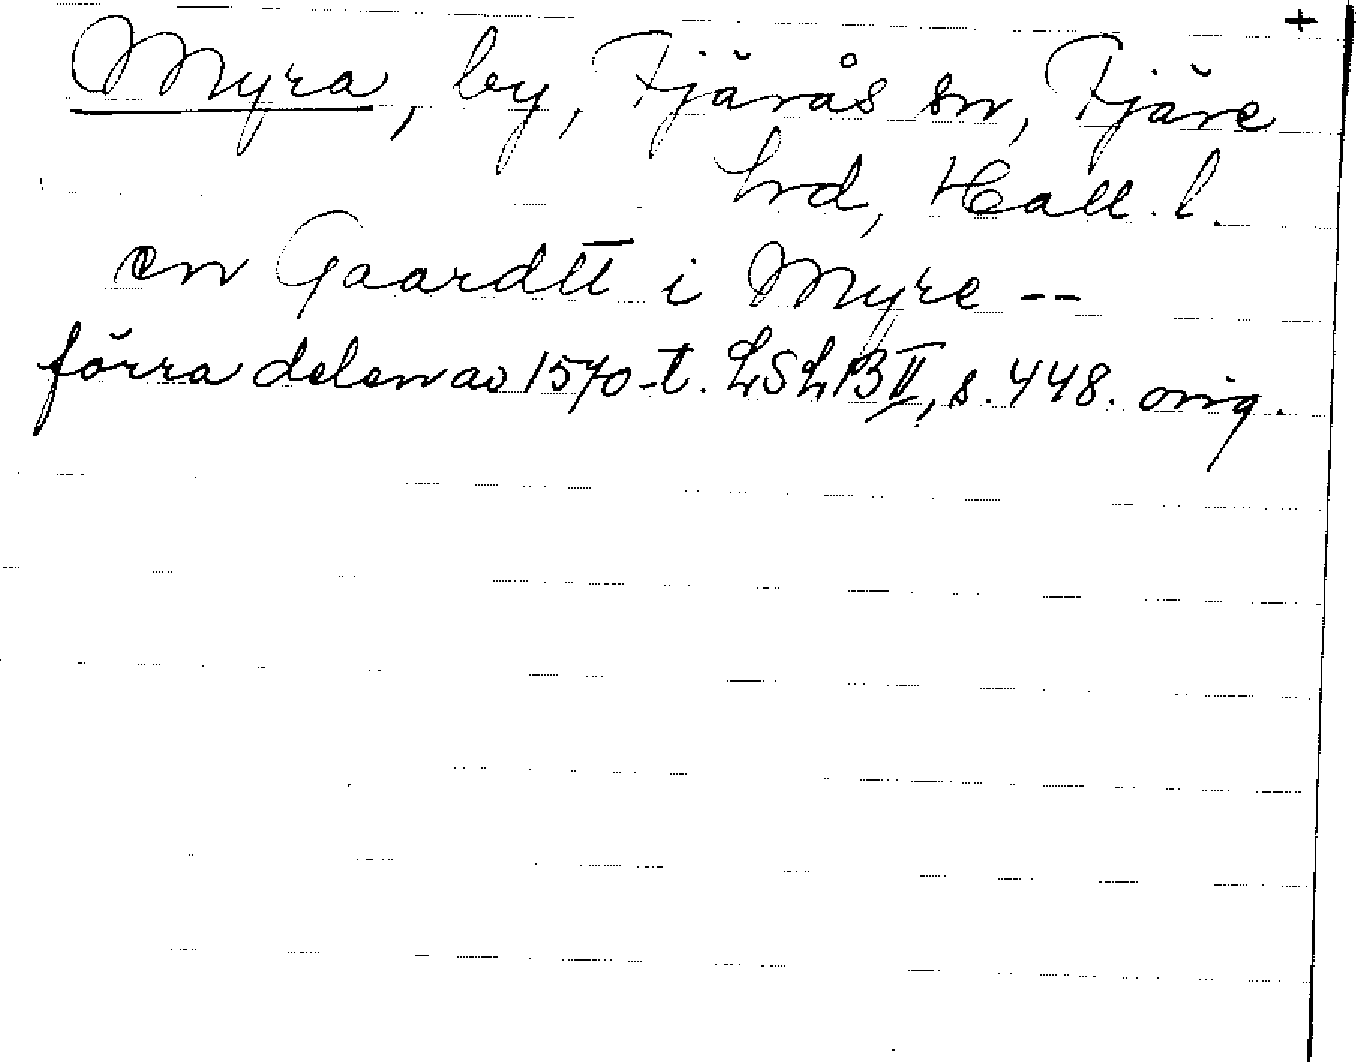 +
Myra, by, Fjärås sn, Fjäre
hrd, Hall. l.
en Gaardtt i Myre --
förra delen av 1570-t. LSLB II, s. 448. orig.